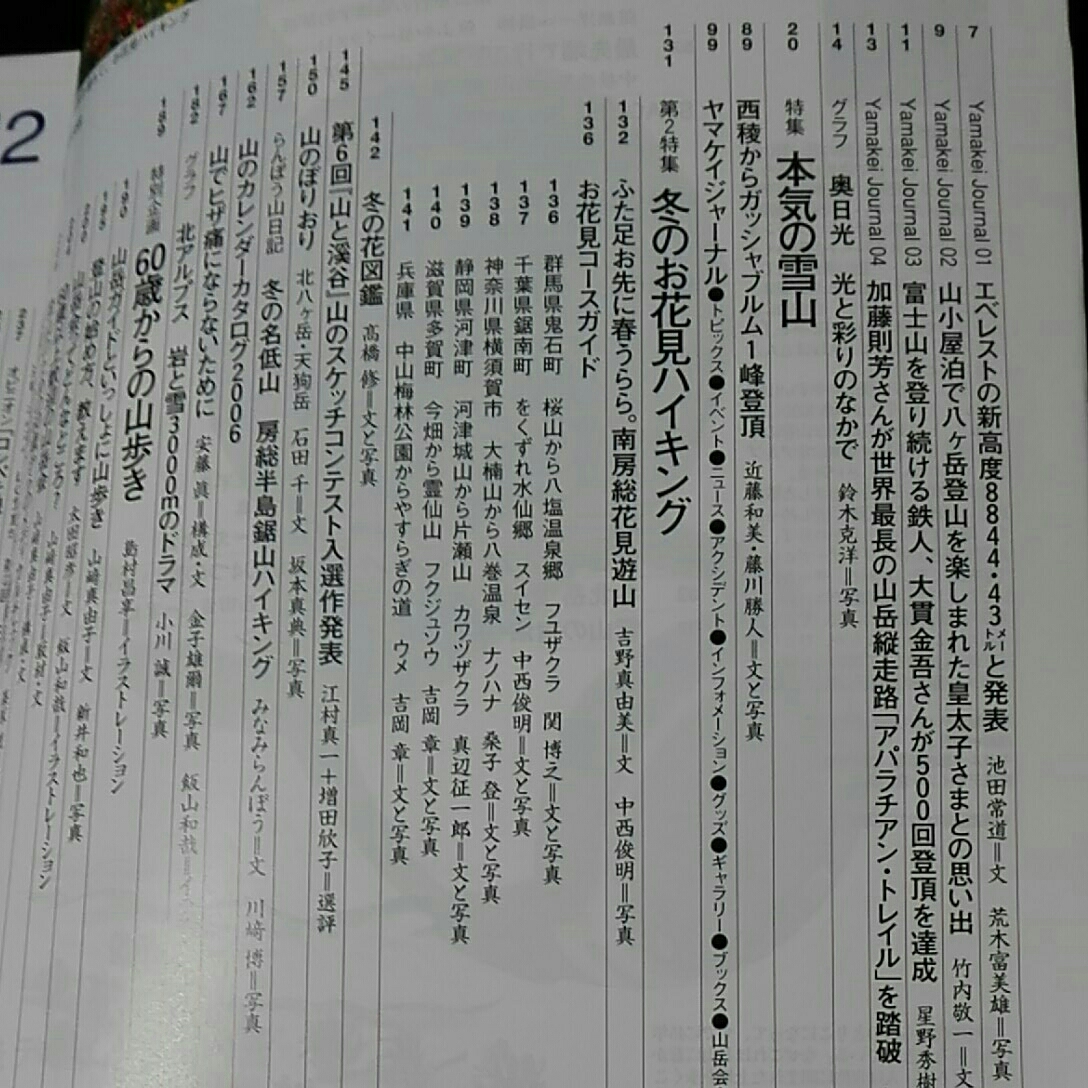 7 Yamakei Journal 01 エベレストの新高度8844・43メートルと発表 池田常道=文 荒木富美雄=写真
9 Yamakei Journal 02 山小屋泊で八ヶ岳登山を楽しまれた皇太子さまとの思い出 竹内敬一=文
11 Yamakei Journal 03 富士山を登り続ける鉄人、大貫金吾さんが500回登頂を達成 星野秀樹
13 Yamakei Journal 04 加藤則芳さんが世界最長の山岳縦走路「アパラチアン・トレイル」を踏破
14 グラフ 奥日光 光と彩りのなかで 鈴木克洋=写真
20 特集 本気の雪山
89 西稜からガッシャブルム1峰登頂 近藤和美・藤川勝人=文と写真
99 ヤマケイジャーナル●トピックス●イベント●ニュース●アクシデント●インフォメーション●グッズ●ギャラリー●ブックス●山岳会
131 第2特集 冬のお花見ハイキング
132 ふた足お先に春うらら。南房総花見遊山 吉野真由美=文 中西俊明=写真
136 お花見コースガイド
136 群馬県鬼石町 桜山から八塩温泉郷 フユザクラ 関 博之=文と写真
137 千葉県鋸南町 をくずれ水仙郷 スイセン 中西俊明=文と写真
138 神奈川県横須賀市 大楠山から八巻温泉 ナノハナ 桑子 登=文と写真
139 静岡県河津町 河津城山から片瀬山 カワヅザクラ 真辺征一郎=文と写真
140 滋賀県多賀町 今畑から霊仙山 フクジュソウ 吉岡 章=文と写真
141 兵庫県 中山梅林公園からやすらぎの道 ウメ 吉岡 章=文と写真
142 冬の花図鑑 髙橋 修=文と写真
145 第6回「山と溪谷」山のスケッチコンテスト入選作発表 江村真一+増田欣子=選評
150 山のぼりおり 北八ヶ岳・天狗岳 石田 千=文 坂本真典=写真
157 らんぼう山日記 冬の名低山 房総半島鋸山ハイキング みなみらんぼう=文 川﨑 博=写真
162 山のカレンダーカタログ2006
167 山でヒザ痛にならないために 安藤 眞=構成・文 金子雄爾=写真 飯山和哉=イラ
182 グラフ 北アルプス 岩と雪3000mのドラマ 小川 誠=写真
189 特別企画 60歳からの山歩き
190 山岳ガイドといっしょに山歩き 島村昌幸=イラストレーション
195 登山の始め方、教えます 山崎真由子=文 新井和也=写真
2